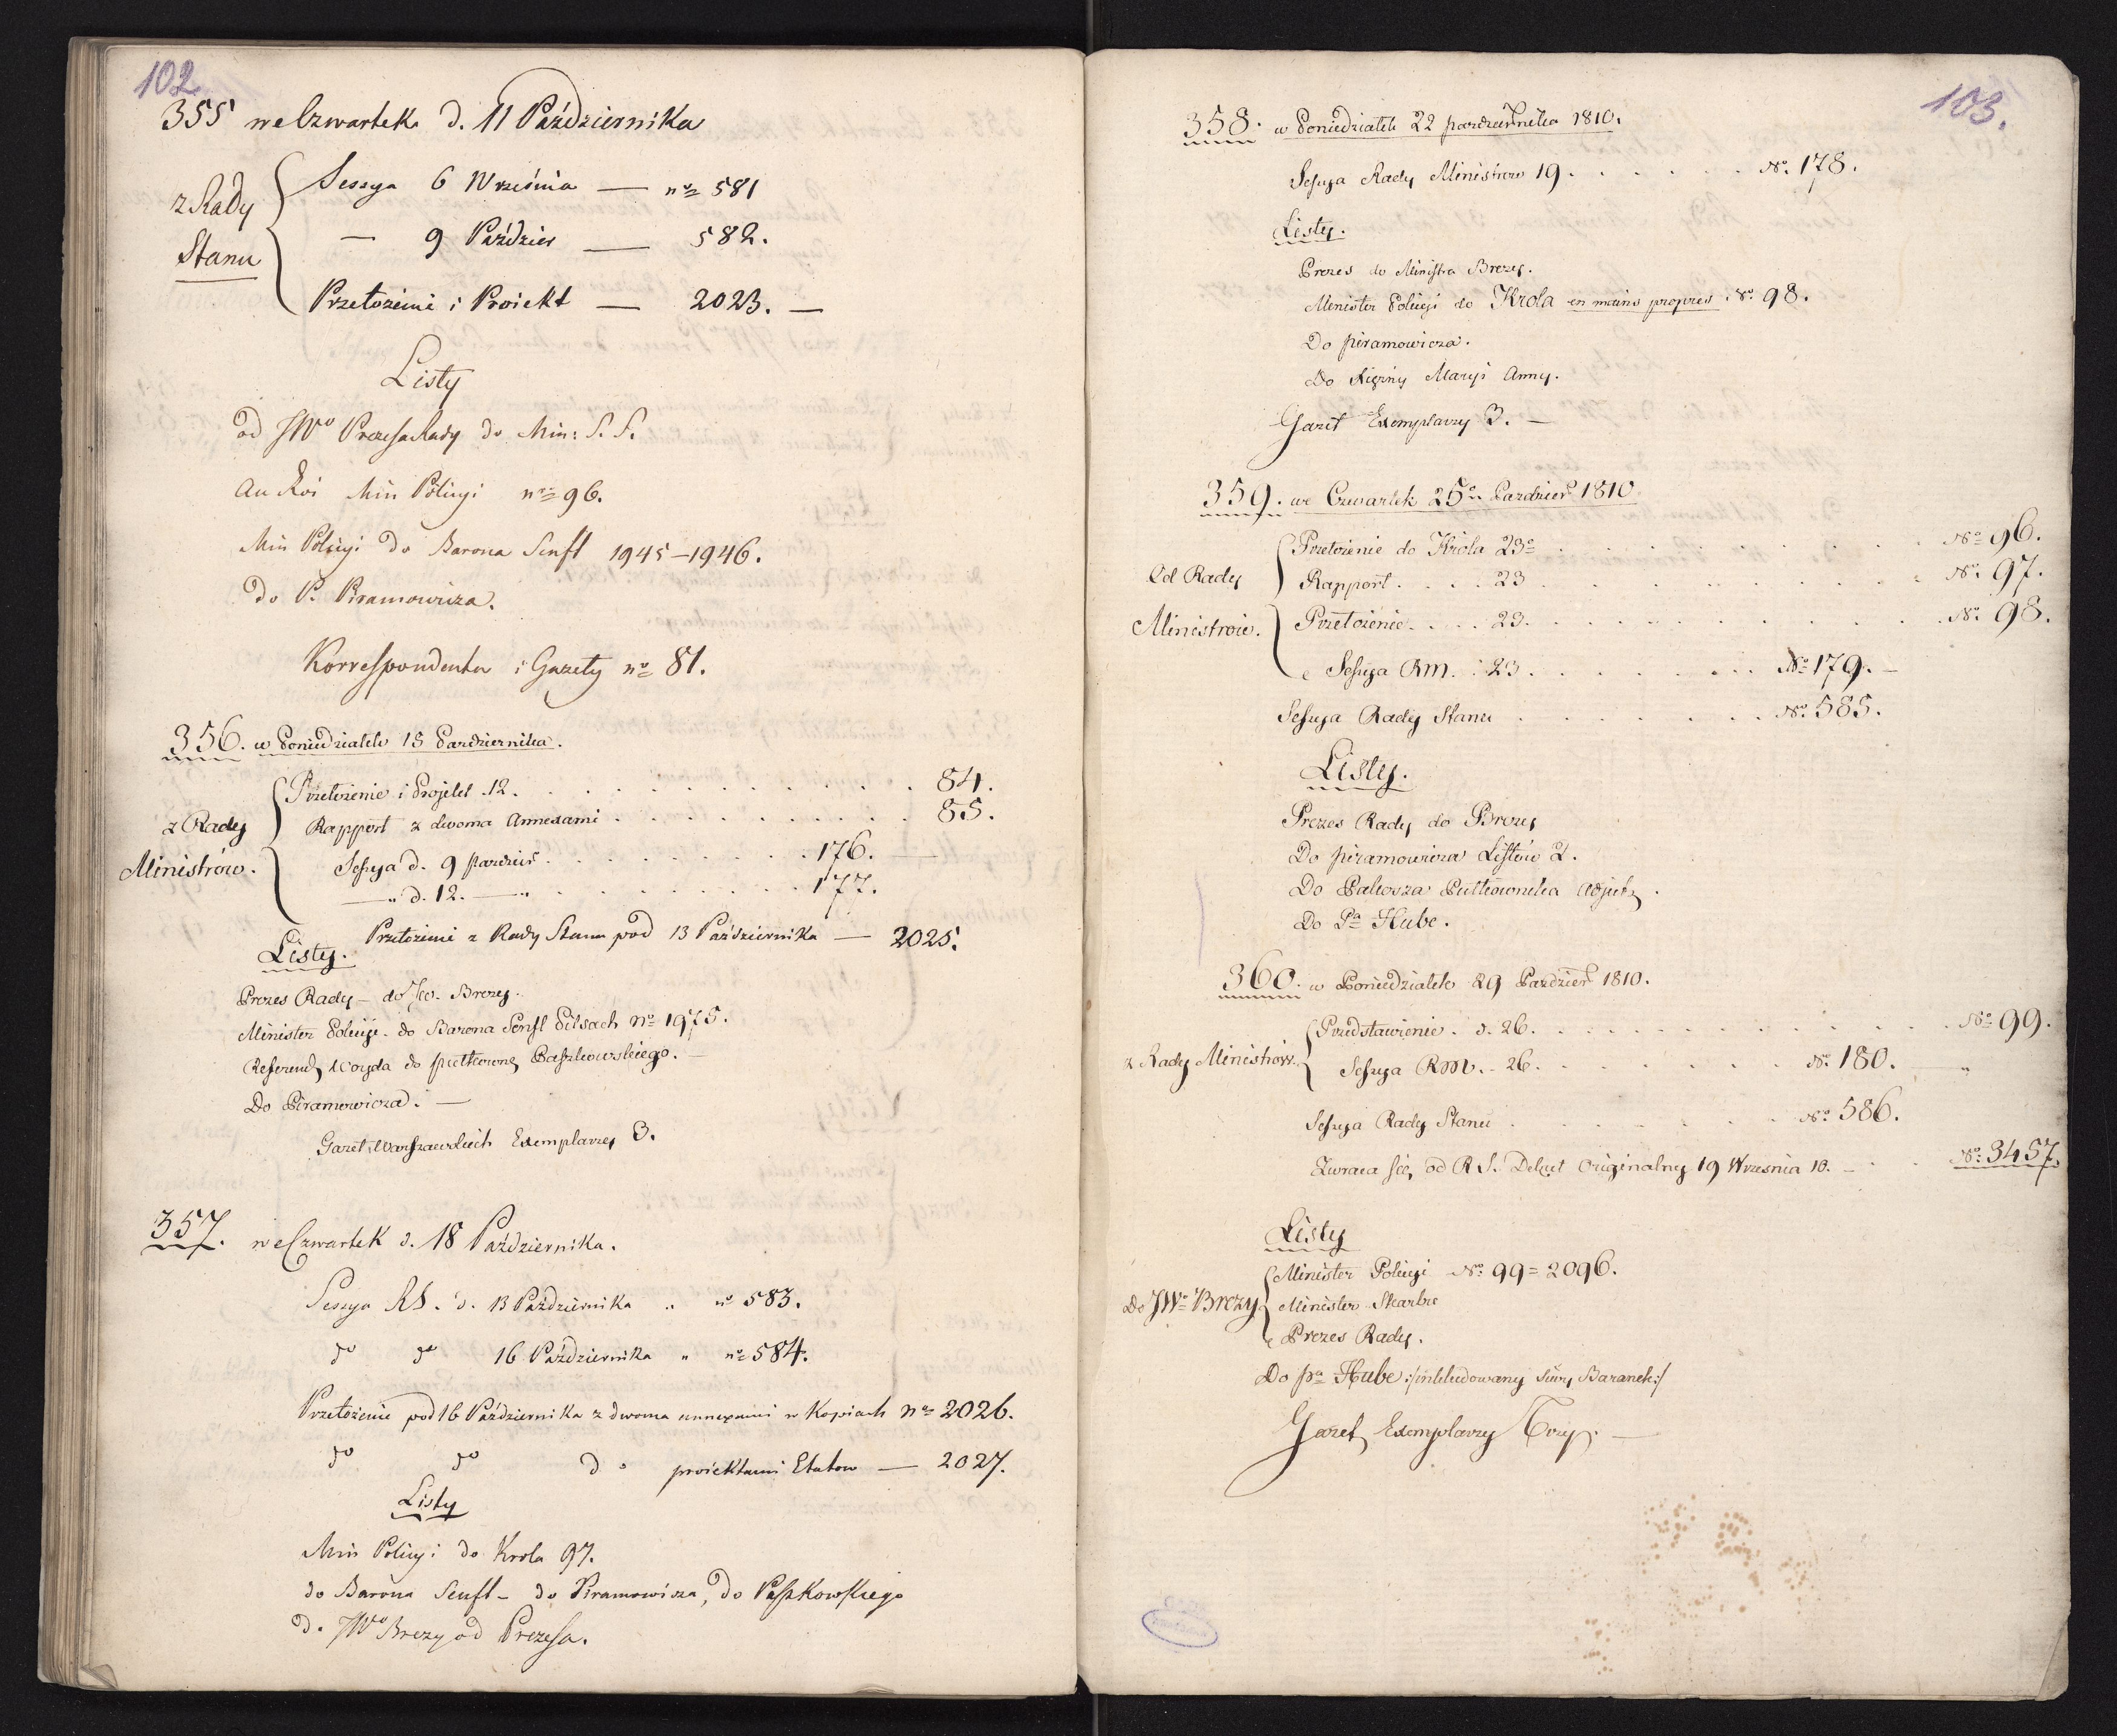 102
355 we Czwartek d. 11 Października
z Rady Stanu
Sessya 6 Września — no 581
— 9 Paździer — 582.
Przełożenie i Proiekt — 2023. —
Listy
od JWo Prezesa Rady do Min: S. S.
Au Roi Min Policyi no 96.
Min Policyi do Barona Senft 1945–1946.
do P. Piramowicza.
Korrespondenta i Gazety no 81.
356. w Poniedziałek 15 Października.
z Rady Ministrów.
Przełożenie i Projekt 12. . . . . 84.
Rapport z dwoma Annexami . . . . 85.
Sessya d. 9 paździer . . . . 176.
—„ d. 12. —„ . . . . 177.
Przełożenie z Rady Stanu pod 13 Października — 2025.
Listy.
Prezes Rady – do Jw. Brezy.
Minister Policyi do Barona Senft Pilsach No 1975.
Referend Woyda do pułkowni Paszkowskiego. —
Do Piramowicza. —
Gazet Warszawskich Exemplarzy 3.
357. we Czwartek d. 18 Października.
Sessya RS. d. 13 Października „ no 583.
do do 16 Października „ no 584.
Przełożenie pod 16 Października z dwoma annexami w Kopiach No 2026.
do do do proiektami Etatow — 2027.
Listy
Min Policyi do Krola 97.
do Barona Senft – do Piramowicza, do Paszkowskiego
do JWo Brezy od Prezesa.
103.
358. w Poniedziałek 22 października 1810.
Sessya Rady Ministrow 19 . . . . No. 178.
Listy.
Prezes do Ministra Brezy.
Minister Policyi do Krola en mains propres. No. 98.
Do piramowicza.
Do Xiężny Maryi Anny.
Gazet Exemplarzy 3. —
359. we Czwartek 25o Paździer 1810
Od Rady Ministrow.
Przełożenie do Króla 23o . . . . No 96.
Rapport . . . . 23 . . . . No. 97.
Przełożenie . . . . 23. . . . . No. 98.
Sessya RM. . 23. . . . . No 179. —
Sessya Rady Stanu . . . . No. 585.
Listy.
Prezes Rady do Brezy
Do piramowicza Listów 2.
Do Pakosza Pułkownika Adjut.
Do Pa Hube.
360. w Poniedziałek 29 Paździer 1810.
z Rady Ministrów.
Przedstawienie . d. 26. . . . . No 99.
Sessya RM. . 26. . . . . No. 180. — „
Sessya Rady Stanu . . . . No 586.
Zwraca się od R S. Dekret Originalny 19 Wrzesnia 10. – . . No. 3457.
Listy
Do JWo Brezy
Minister Policyi No. 99 = 2096.
Minister Skarbu
Prezes Rady.
Do pa Hube :/inkludowany Baranek:/
Gazet Exemplarzy Trzy. —